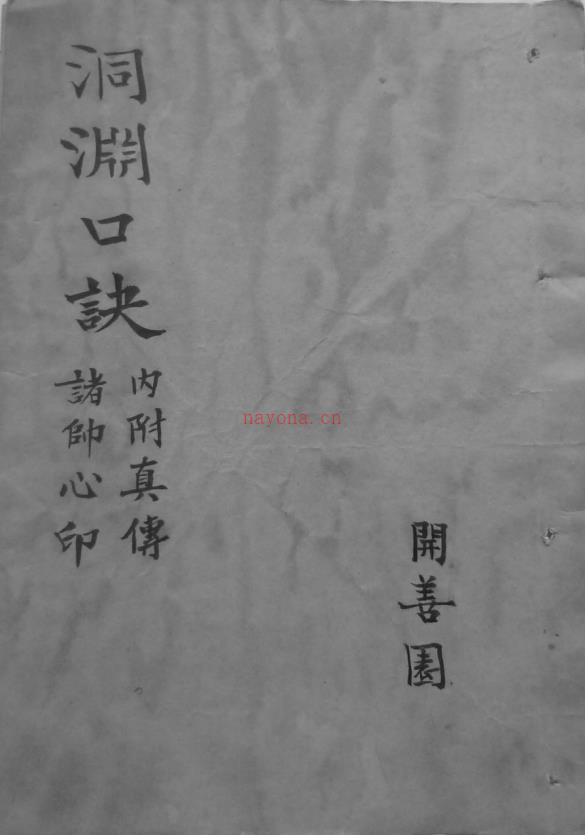 開善園
洞淵口訣
内附真傳
諸帥心印
nayona.cn